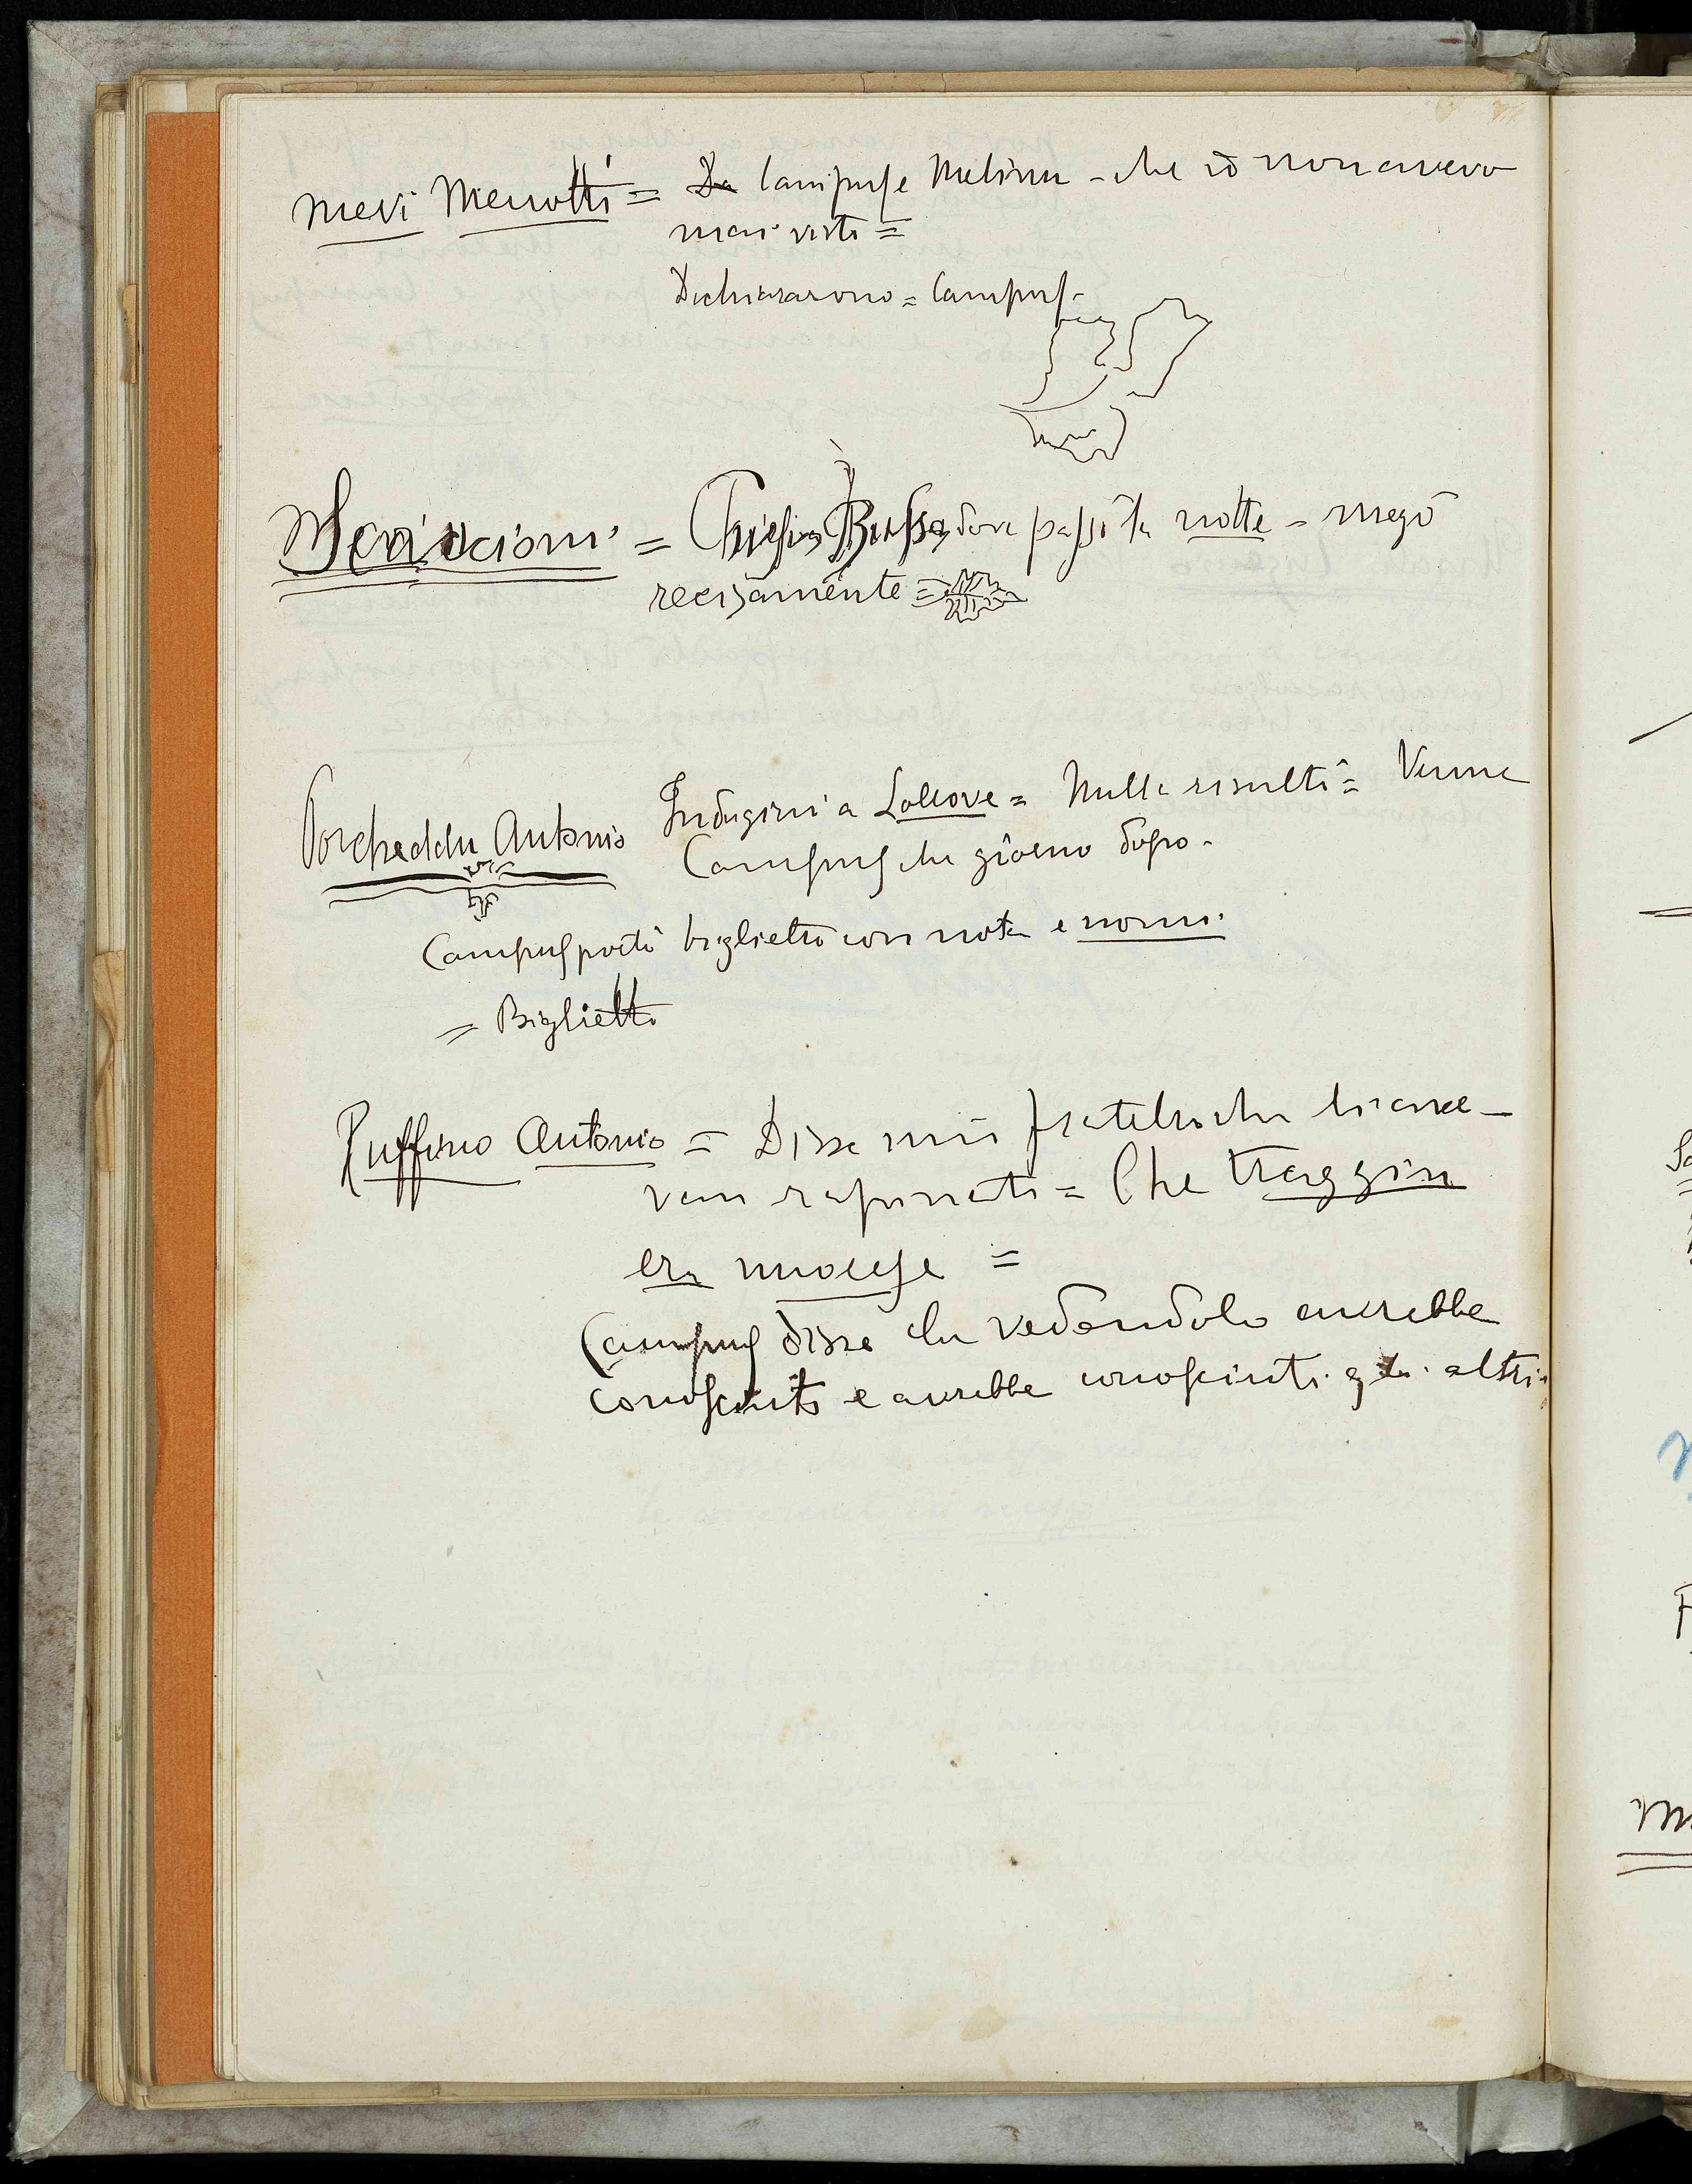 Mevi Menotti = Da Campus e Melinu - che io non avevo
mai visti =
Dichiararono = Campus -
= Chiesi a Bussa dove passò la notte - negò
recisamente =
Porcheddu Antonio Indagini a Lollove = Nulla risultò = Venne
Campus che giorno dopo -
Campus portò biglietto con nota e nomi
= Biglietto
Ruffino Antonio = Disse mio fratello che li ave-
van rapinati = Che Traggiu
era nuorese =
Campus disse che vedendolo avrebbe
conosciuto e avrebbe conosciuti gli altri